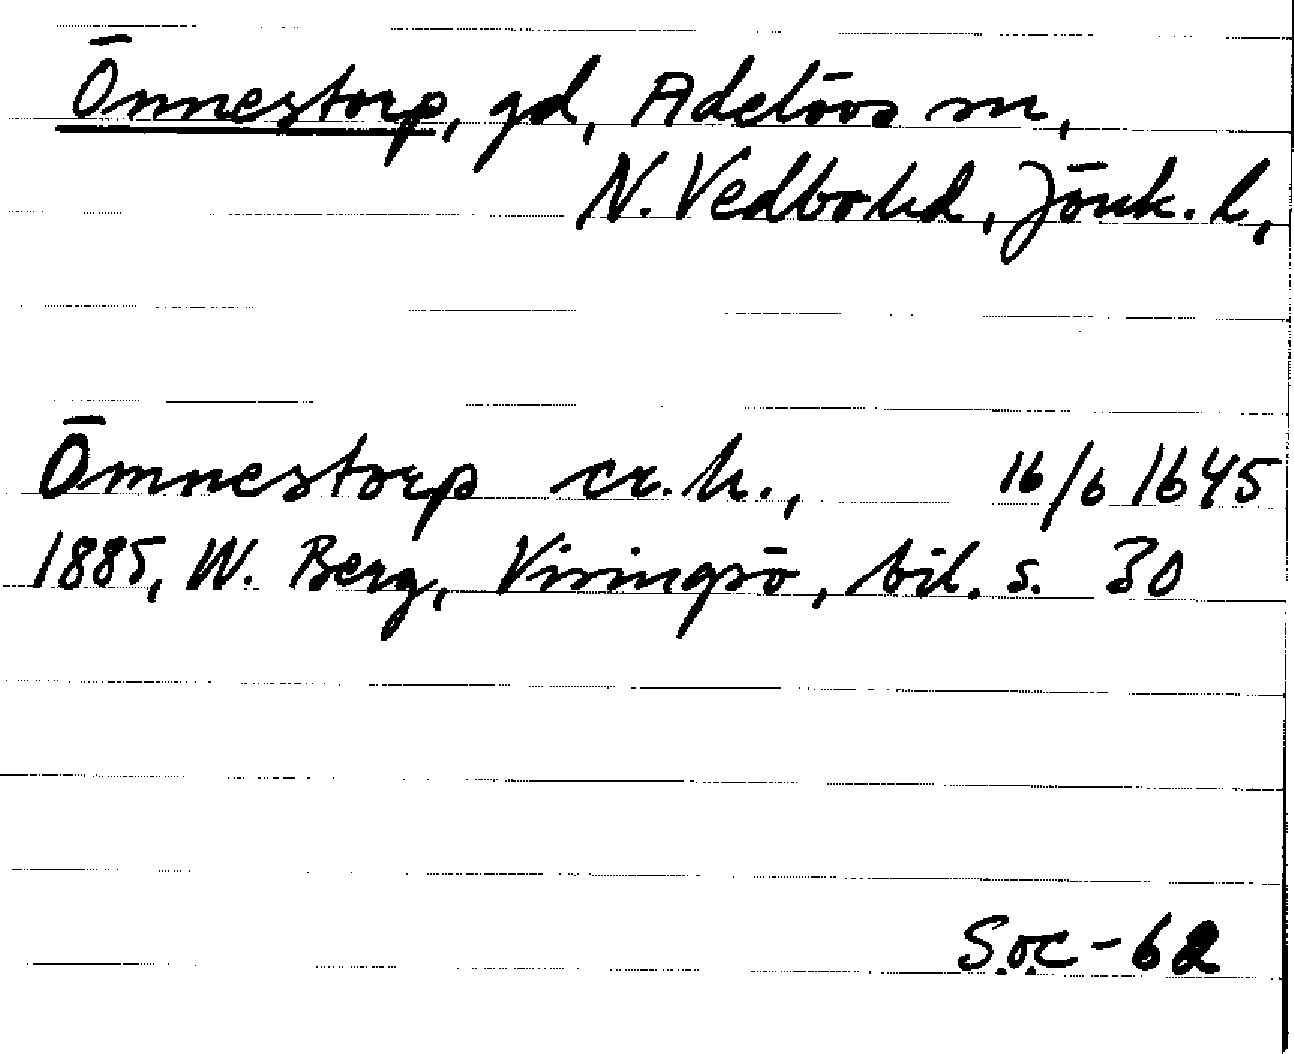 Önnestorp, gd, Adelövs sn,
N. Vedbo hd, Jönk. l,
Ömnestorp cr.h., 16/6 1645
1885, W. Berg, Visingsö, bil. s. 30
S.o.C-62